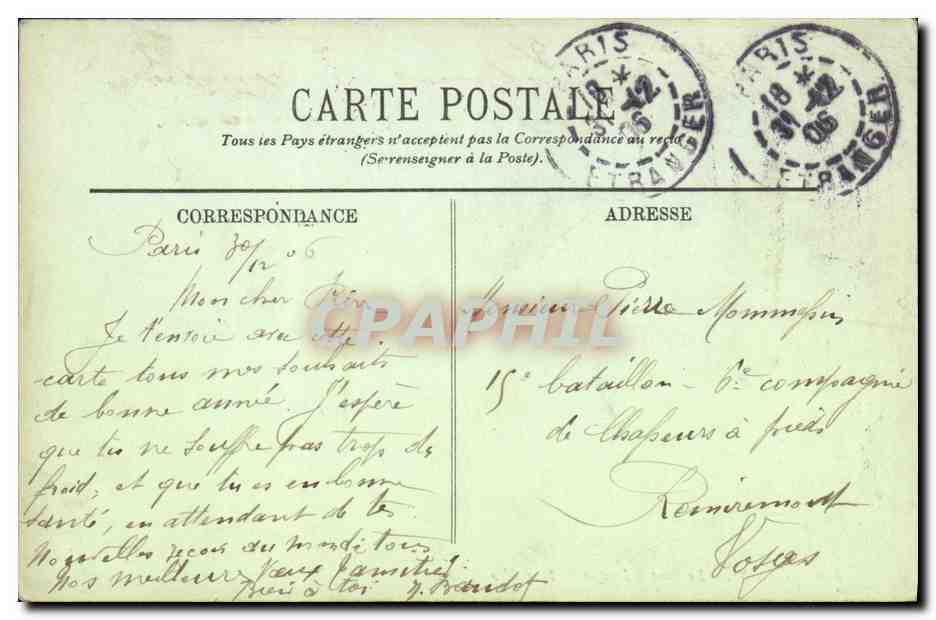 CARTE POSTALE
Tous les Pays étrangers n'acceptent pas la Correspondance au recto
(Se renseigner à la Poste).
PARIS
18 *
31 -12
06
ETRANGER
PARIS
18 *
31 -12
06
ETRANGER
CORRESPONDANCE
Paris 30/12 06
Mon cher
Je t'envoie avec cette
carte tous nos souhaits
de bonne année. J'espère
que tu ne souffre pas trop du
froid, et que tu es en bonne
santé, en attendant de tes
Nouvelles reçois
Nos meilleurs Vœux d'amitié
Bien à toi
ADRESSE
Monsieur Pierre
15e bataillon - 6e compagnie
de Chasseurs à pieds
Remiremont
Vosges
CPAPHIL